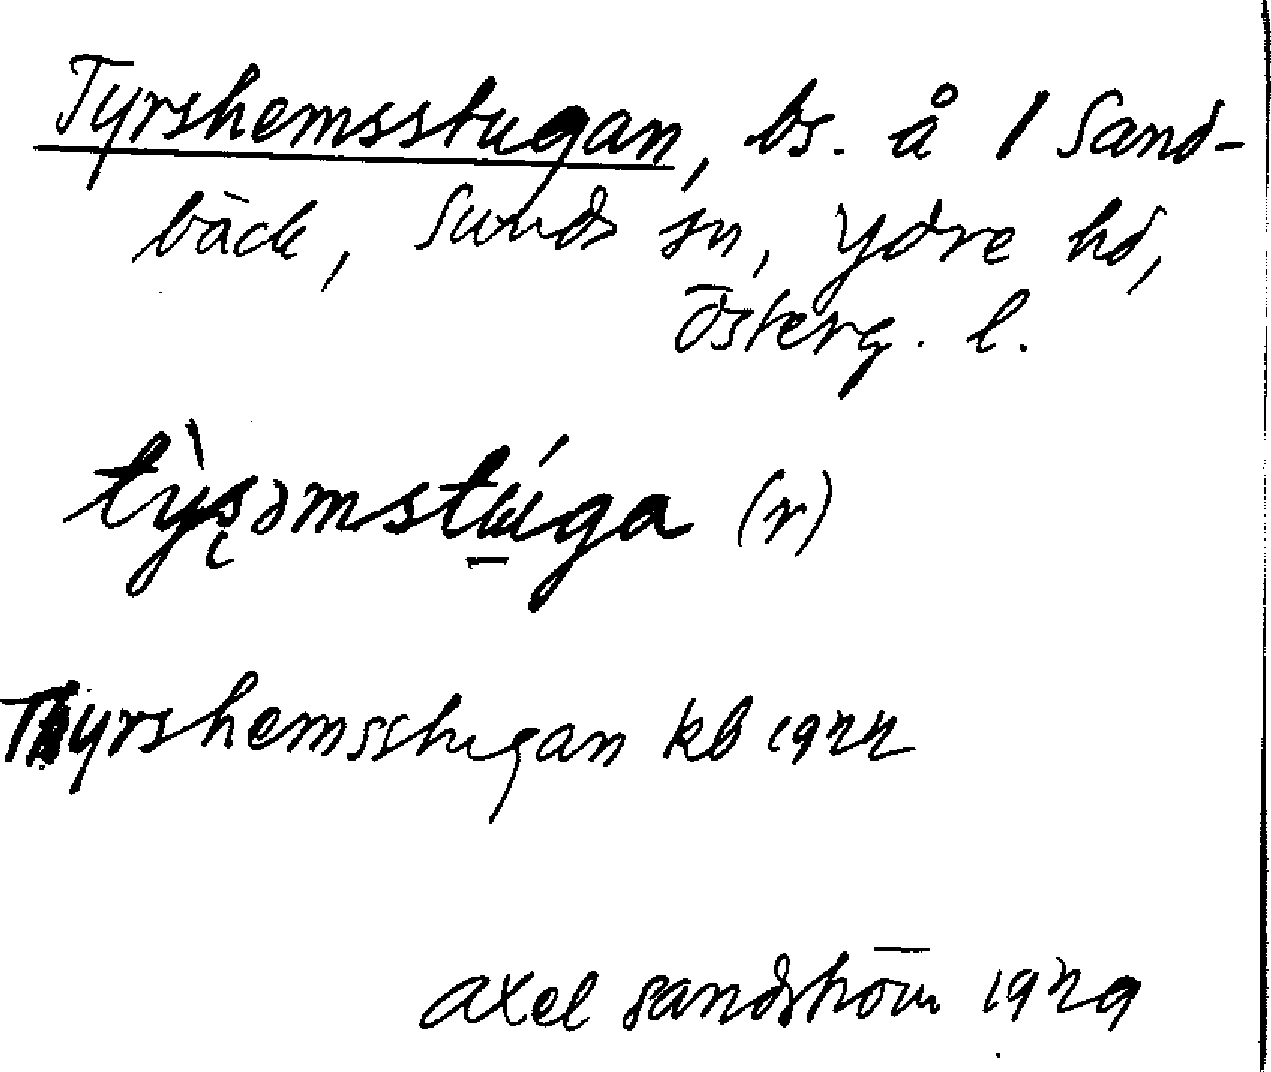 Tyrshemsstugan, bs. å 1 Sand-
bäck, Sunds sn, Ydre hd,
Österg. l.
(r)
Thyrshemsstugan kb 1922
Axel Sandström 1929